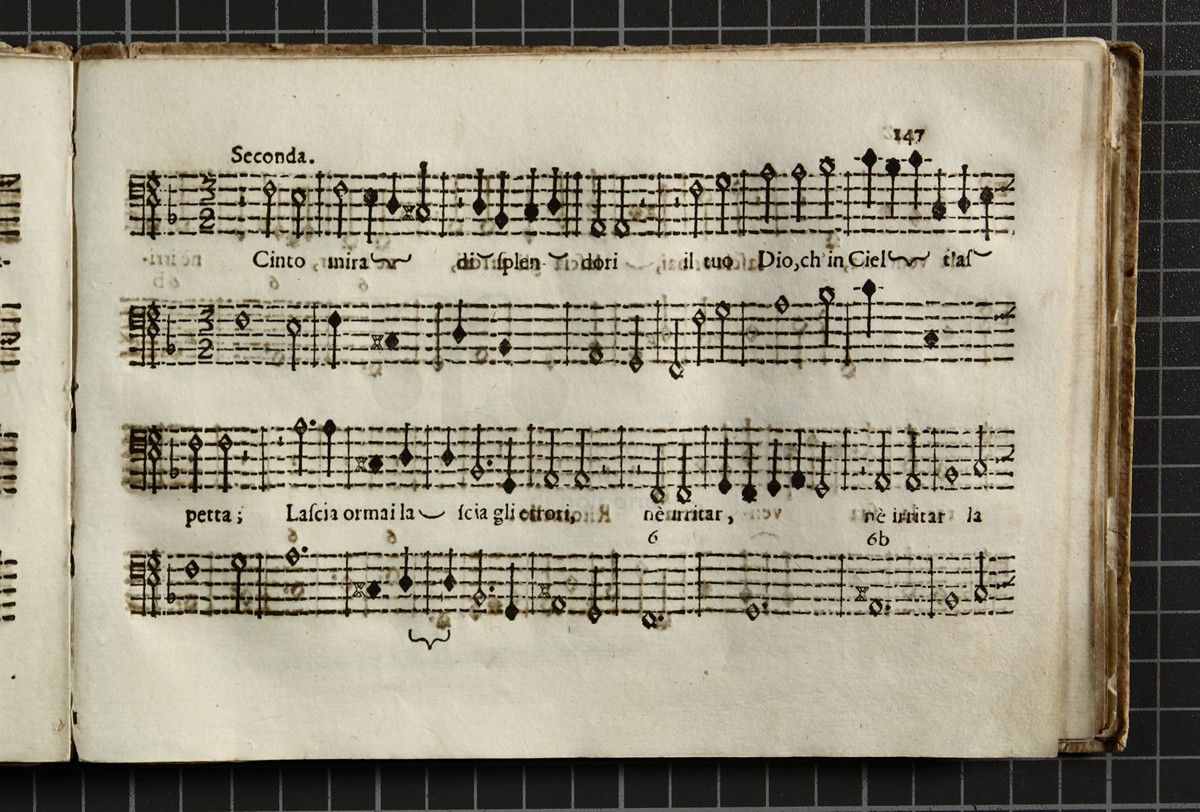 147
Seconda.
Cinto mira di ſplen dori il tuo Dio,ch'in Ciel t'aſ
petta; Laſcia ormai la ſcia gli errori, nè irritar, nè irritar la
6 6 6 6b